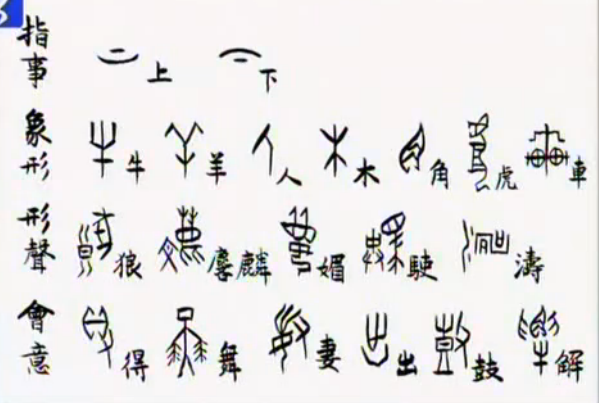 指事 上 下
象形 牛 羊 人 木 角 虎 車
形聲 狼 麐麟 媚 駛 濤
會意 得 舞 妻 出 鼓 解